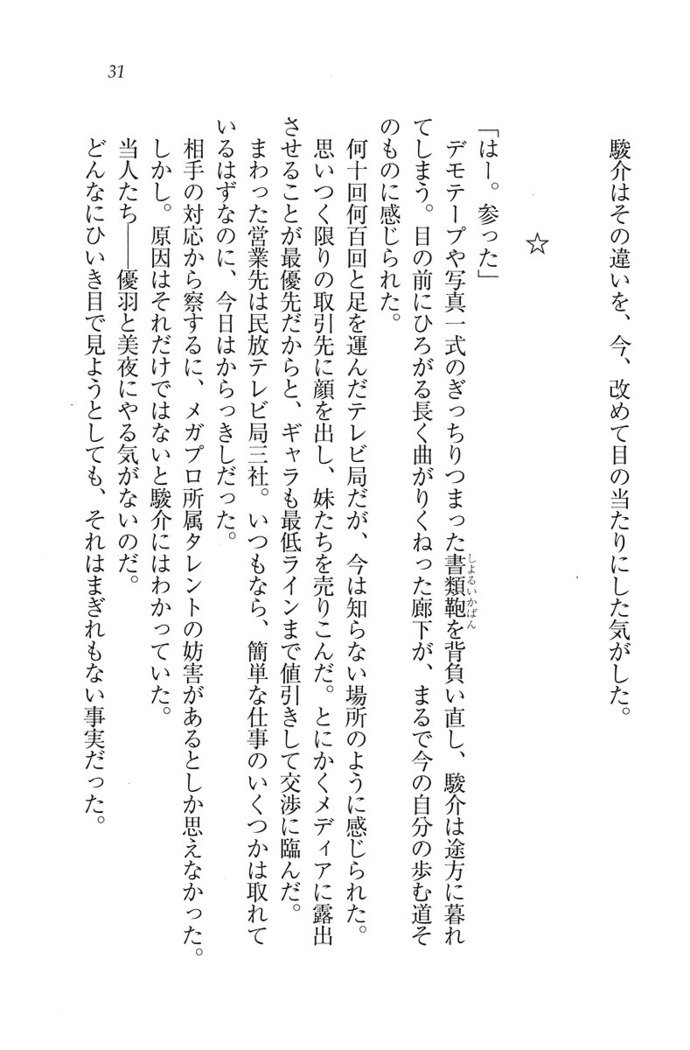 31
駿介はその違いを、今、改めて目の当たりにした気がした。
☆
「はー。参った」
デモテープや写真一式のぎっちりつまった書類鞄を背負い直し、駿介は途方に暮れ
しよるいかばん
てしまう。目の前にひろがる長く曲がりくねった廊下が、まるで今の自分の歩む道そ
のものに感じられた。
何十回何百回と足を運んだテレビ局だが、今は知らない場所のように感じられた。
思いつく限りの取引先に顔を出し、妹たちを売りこんだ。とにかくメディアに露出
させることが最優先だからと、ギャラも最低ラインまで値引きして交渉に臨んだ。
まわった営業先は民放テレビ局三社。いつもなら、簡単な仕事のいくつかは取れて
いるはずなのに、今日はからっきしだった。
相手の対応から察するに、メガプロ所属タレントの妨害があるとしか思えなかった。
しかし。原因はそれだけではないと駿介にはわかっていた。
当人たち――優羽と美夜にやる気がないのだ。
どんなにひいき目で見ようとしても、それはまぎれもない事実だった。